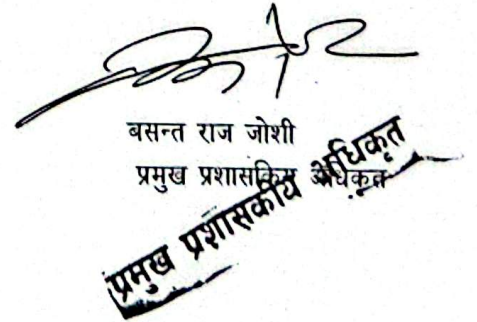 बसन्त राज जोशी
प्रमुख प्रशासकिय अधिकृत
प्रमुख प्रशासकीय अधिकृत